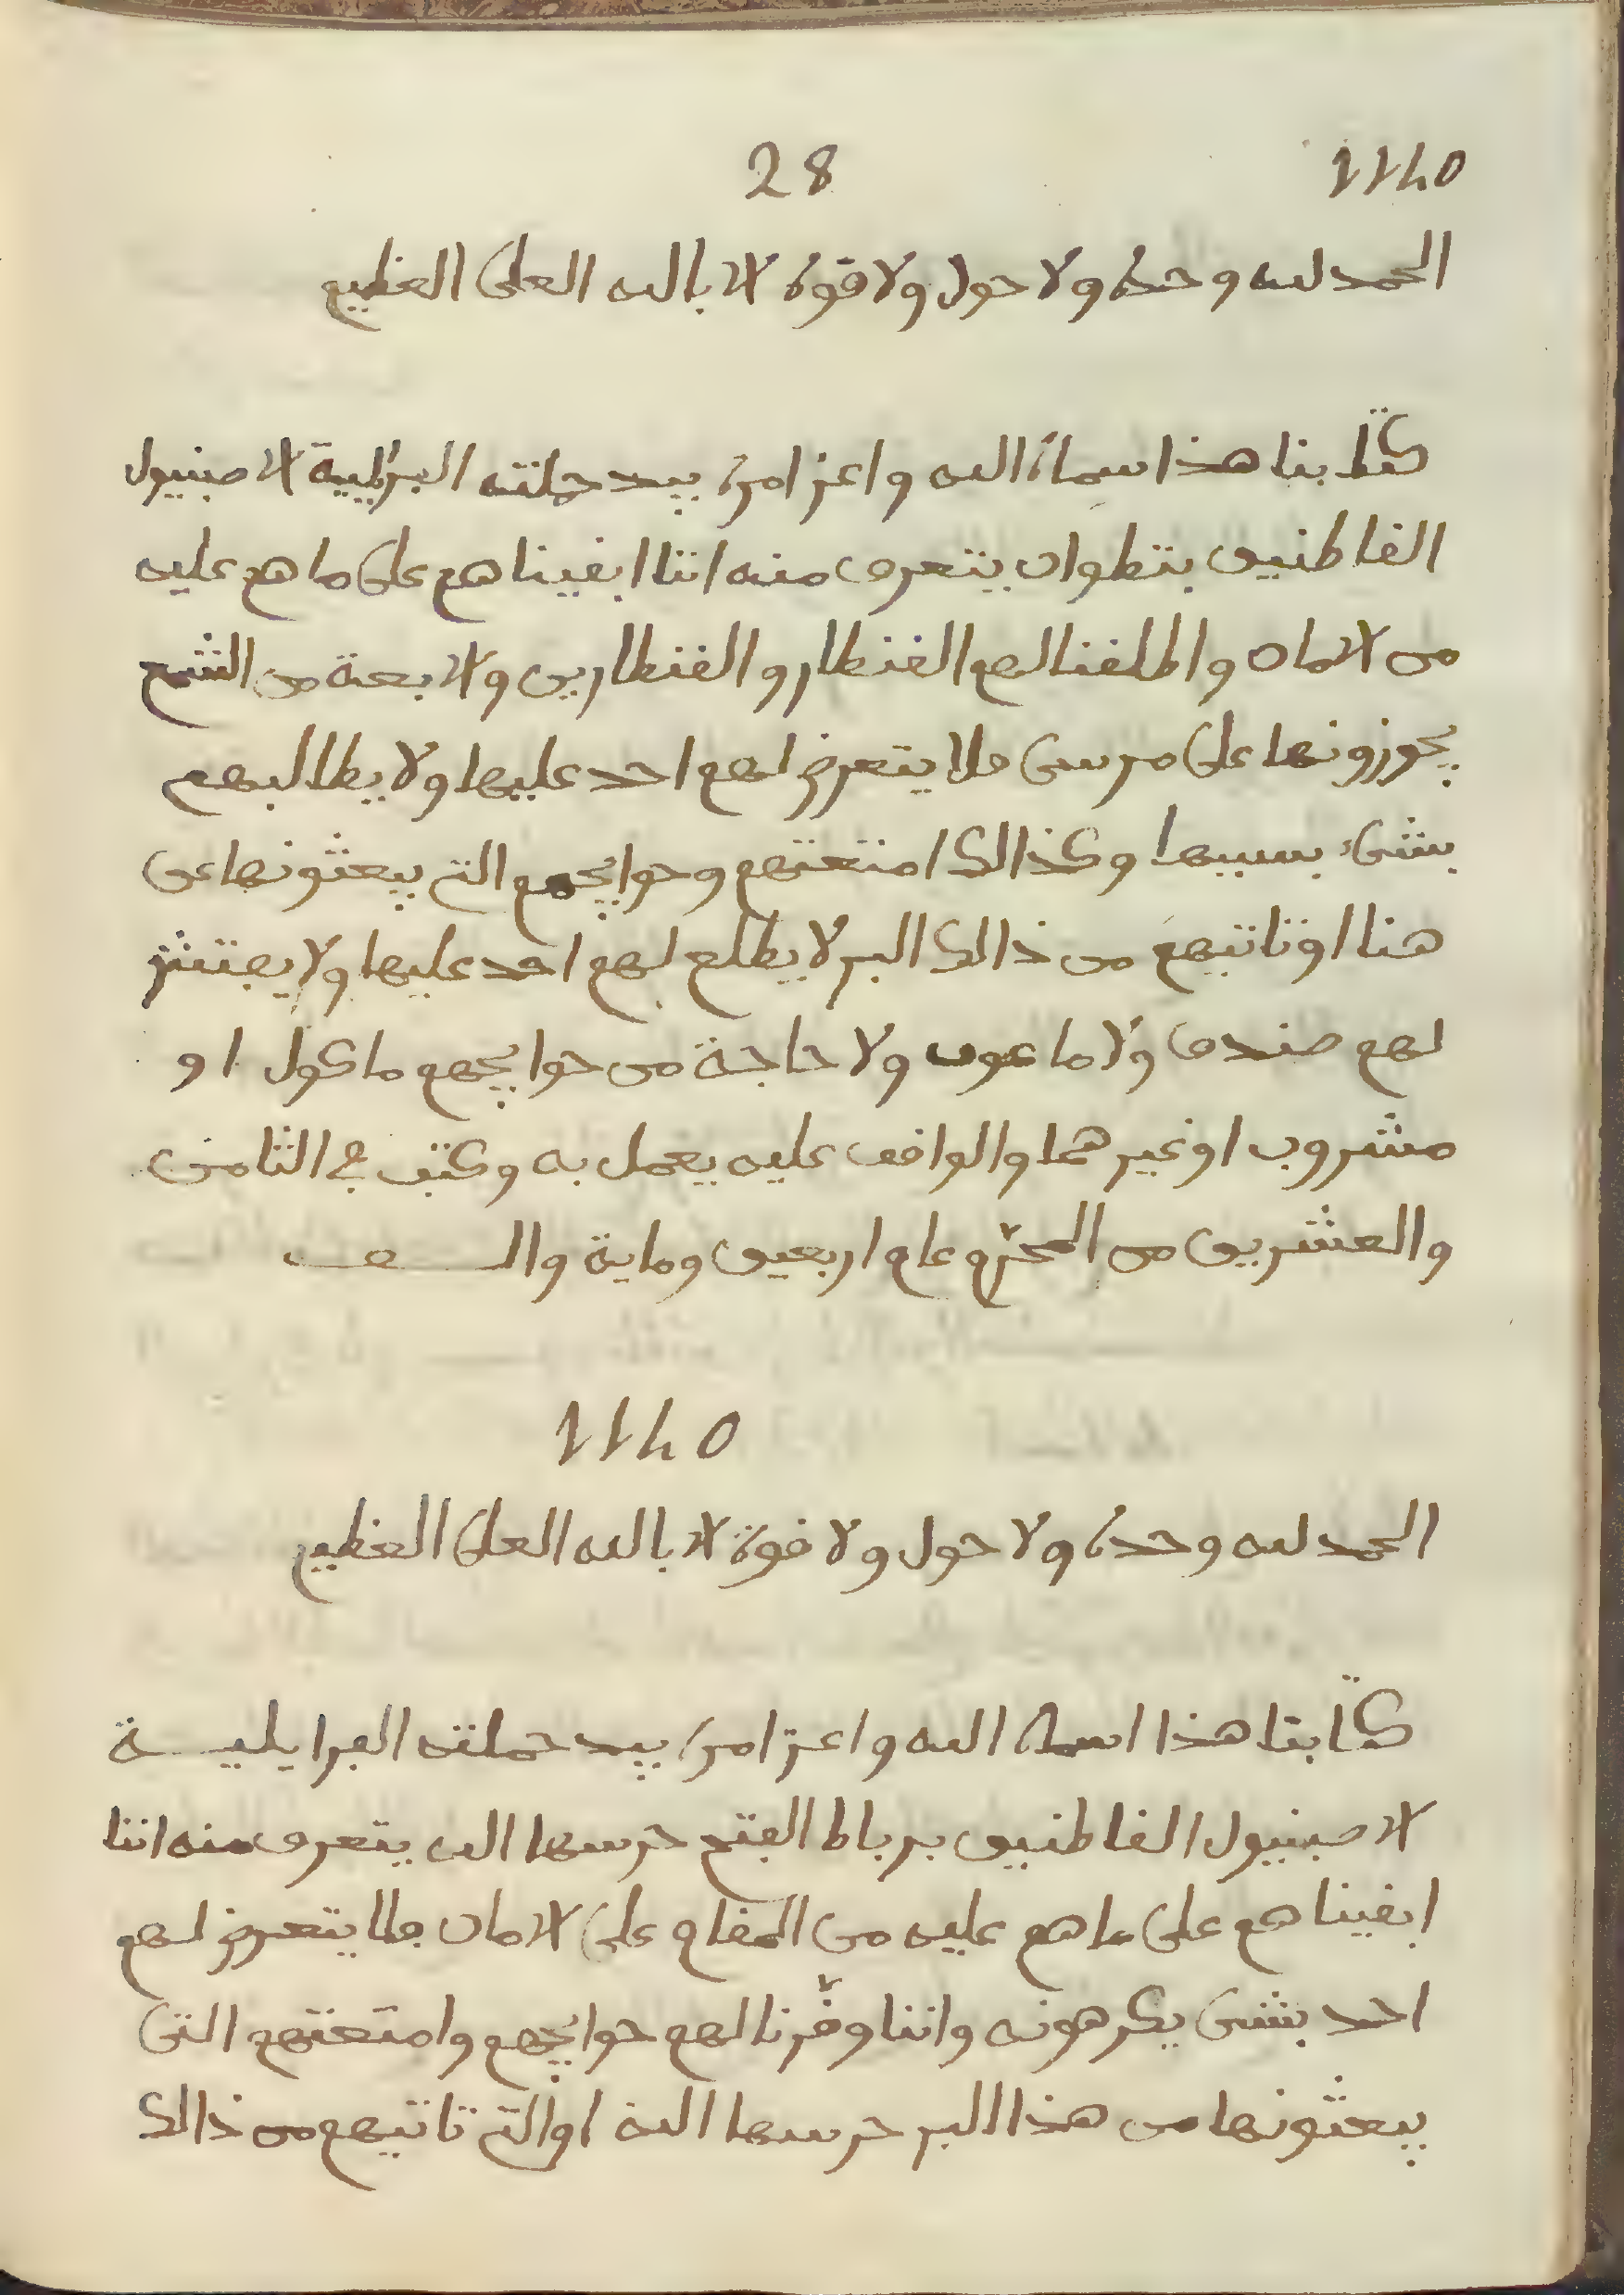 28 1140
الحمد لله وحده ولا حول ولا قوة الا بالله العلى العظيم
كتابنا هذا اسماه الله واعز امره بيد حملته البرايلية الاصبنيول
القاطنين بتطوان يتعرف منه اننا ابقيناهم على ما هم عليه
من الامان واطلقنا لهم القنطار والقنطارين والاربعة من الشمع
يحوزونها على مرسى فلا يتعرض لهم احد عليها ولا يطالبهم
بشىء بسببها وكذالك امتعتهم وحوايجهم التى يبعثونها عن
هنا او تاتيهم من ذالك البر لا يطلع لهم احد عليها ولا يفتش
لهم صندق ولا ماعون ولا حاجة من حوايجهم ماكول او
مشروب او غيرهما والواقف عليه يعمل به وكتب فى الثامن
والعشرين من المحرّم عام اربعين وماية والف
1140
الحمد لله وحده ولا حول ولا قوة الا بالله العلى العظيم
كتابنا هذا اسماه الله واعز امره بيد حملته البرايلية
الاصبنيول القاطنين برباط الفتح حرسها الله يتعرف منه اننا
ابقيناهم على ما هم عليه من المقام على الامان فلا يتعرض لهم
احد بشىء يكرهونه واننا وقّرنا لهم حوايجهم وامتعتهم التى
يبعثونها من هذا البر حرسها الله او التى تاتيهم من ذالك